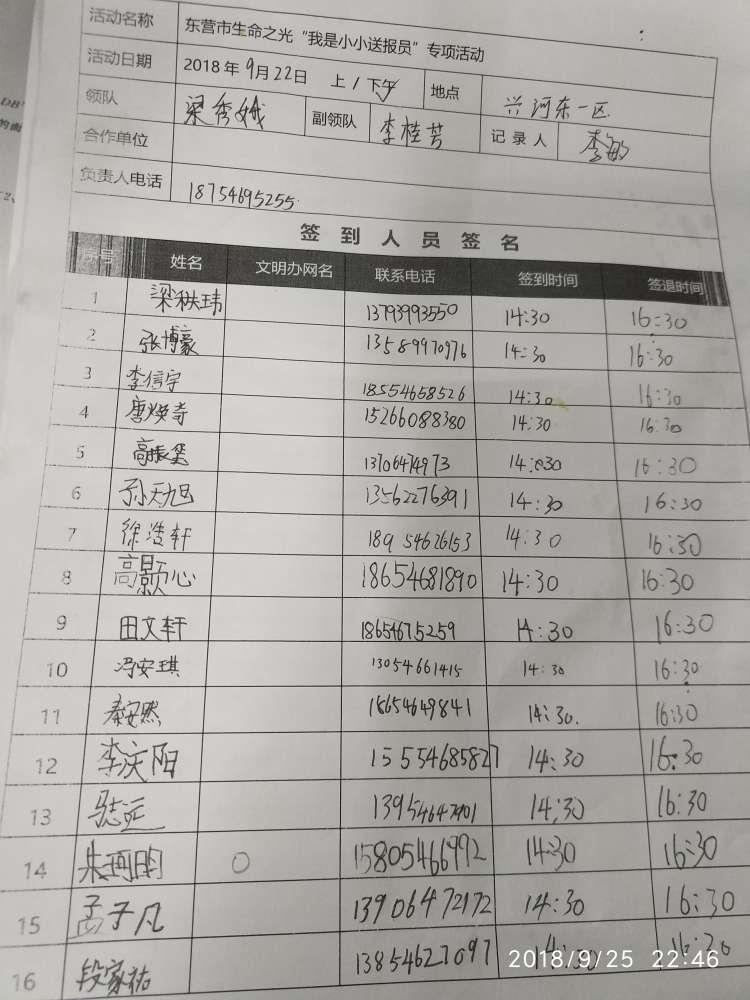 活动名称 东营市生命之光“我是小小送报员”专项活动
活动日期 2018年9月22日 上/下午 地点 兴河东一区
领队 梁秀娥 副领队 李桂芳 记录人 李敏
合作单位
负责人电话 18754695255
签到人员签名
序号 姓名 文明办网名 联系电话 签到时间 签退时间
1 梁秩玮 13793993550 14:30 16:30
2 张博豪 13589970976 14:30 16:30
3 李信宇 18554658526 14:30 16:30
4 唐焕寺 15266088380 14:30 16:30
5 高振 13706474973 14:030 16:30
6 孙天旭 13562276391 14:30 16:30
7 徐浩轩 189 54626153 14:30 16:30
8 高颢心 18654681890 14:30 16:30
9 田文轩 18654675259 14:30 16:30
10 冯安琪 13054661415 14:30 16:30
11 秦安然 18654649841 14:30. 16:30
12 李庆阳 15554685827 14:30 16:30
13 远 13954647901 14:30 16:30
14 朱珂明 15805466992 14:30 16:30
15 孟子凡 13906472172 14:30 16:30
16 段家祐 13854627097 14:30 16:30
2018/9/25 22:46